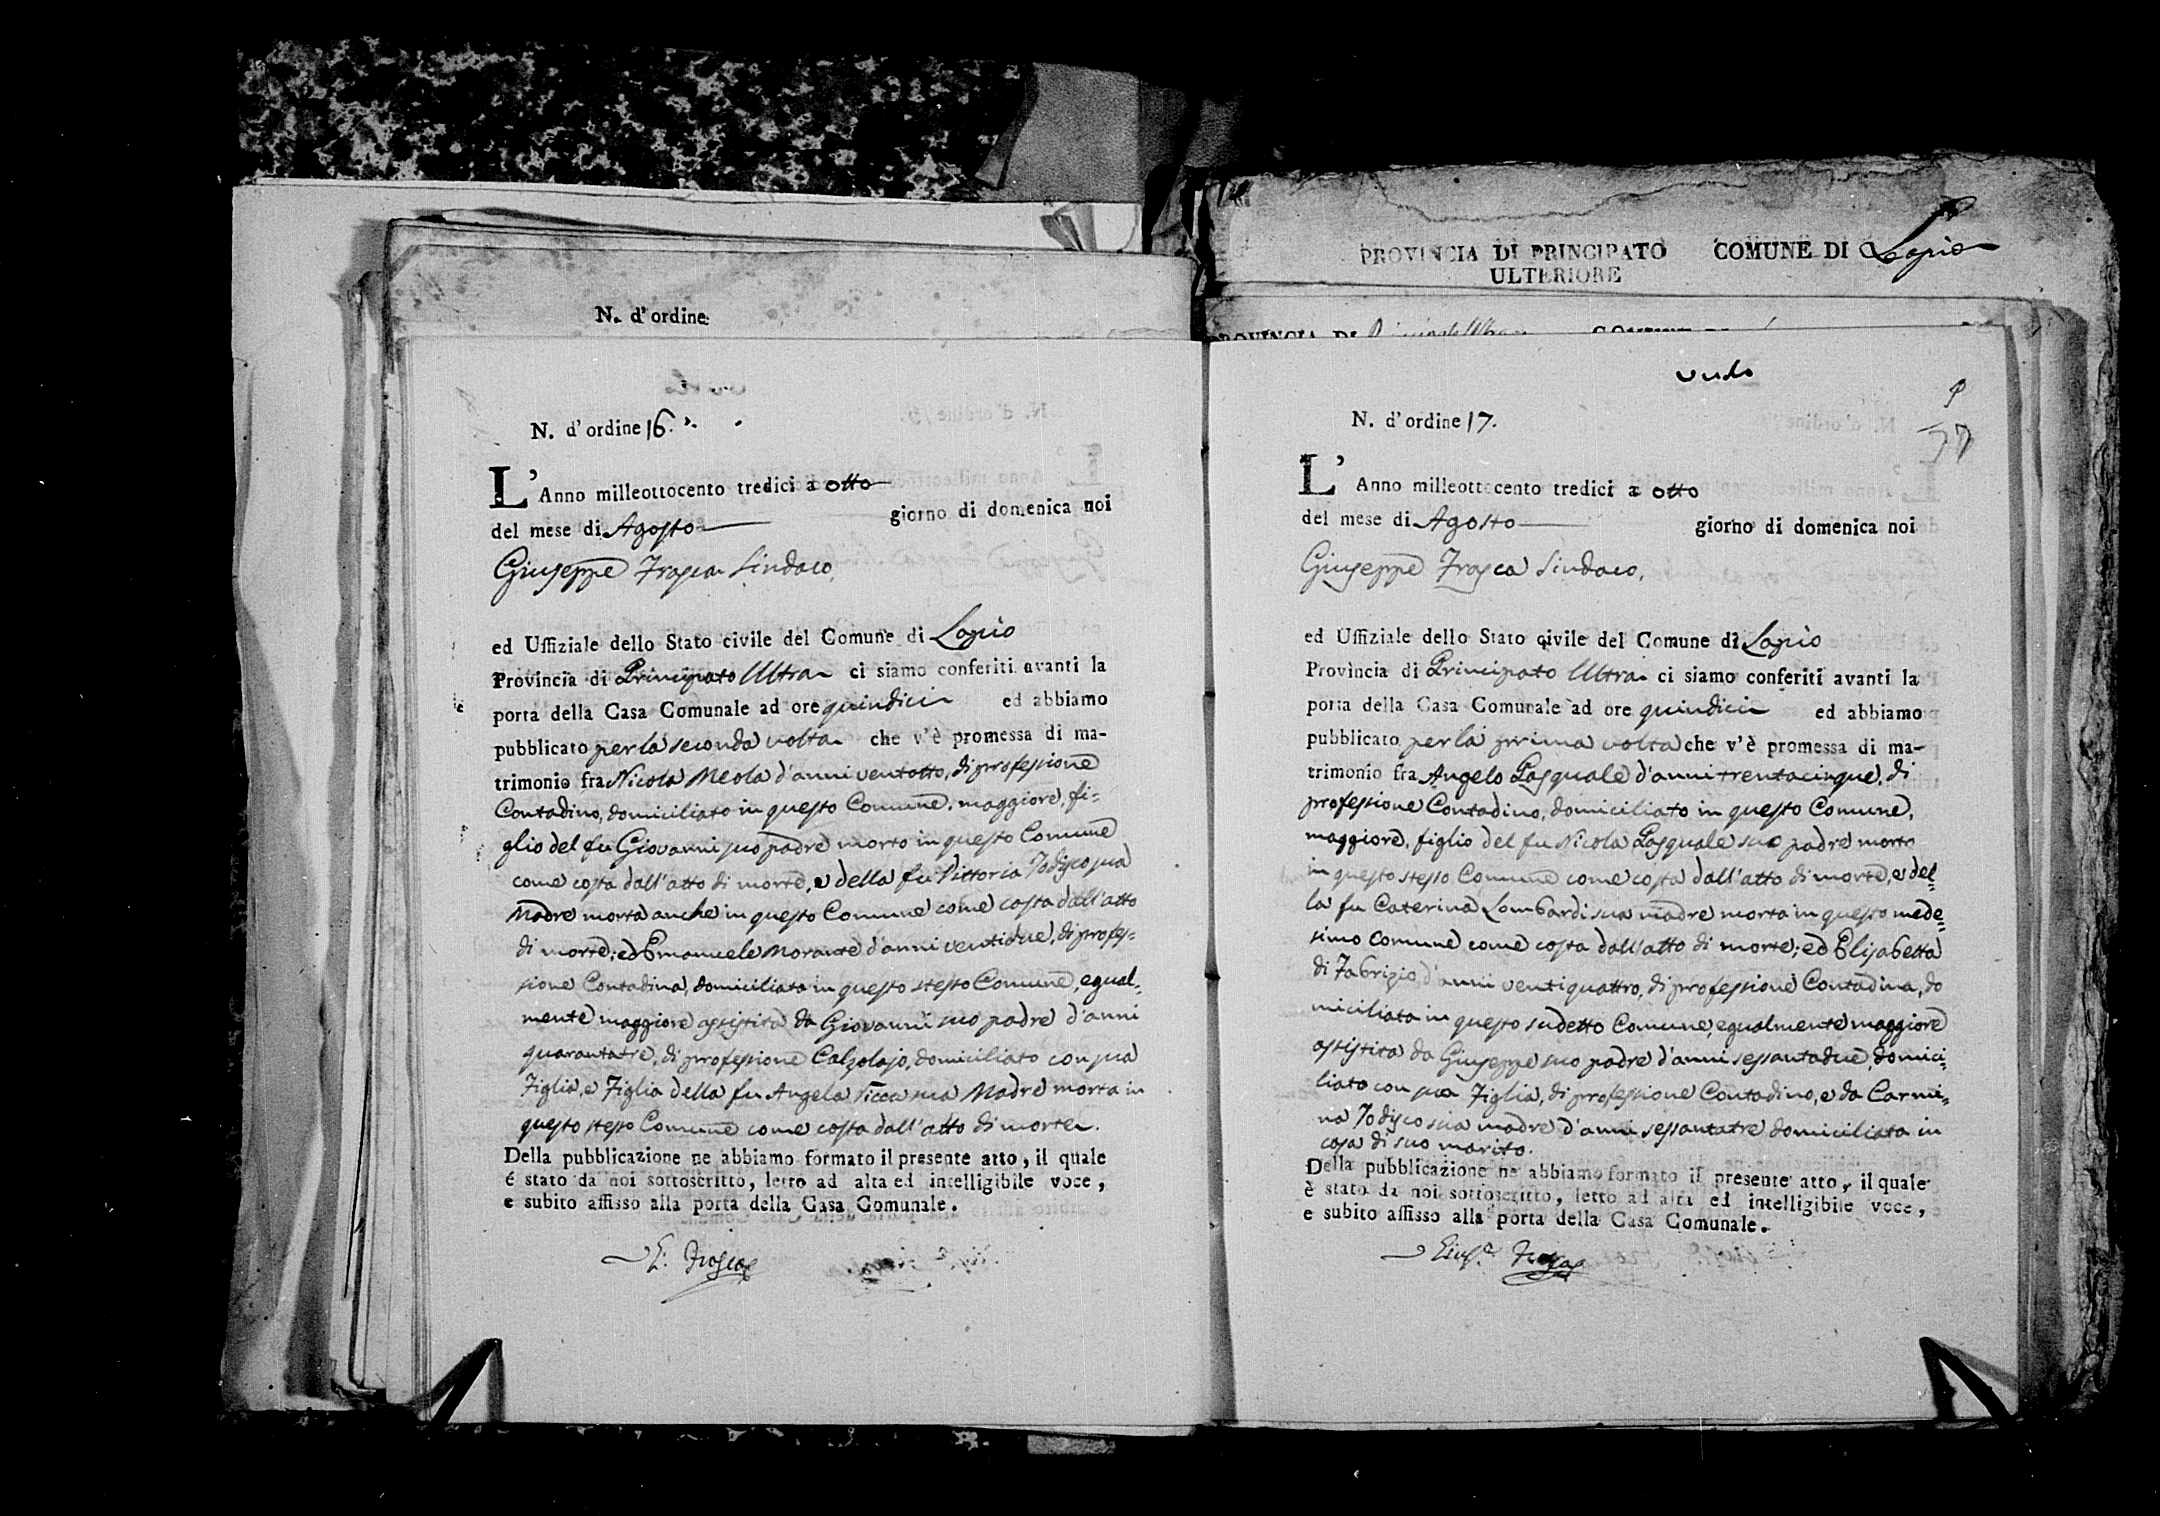 N. d'ordine
N. d'ordine 16.
L'Anno milleottocento tredici a otto
del mese di Agosto giorno di domenica noi
Giuseppe Frasca Sindaco,
ed Uffiziale dello Stato civile del Comune di Lapio
Provincia di Principato Ultra ci siamo conferiti avanti la
porta della Casa Comunale ad ore quindici ed abbiamo
pubblicato per la seconda volta che v'è promessa di ma-
trimonio fra Nicola Meola d'anni ventotto, di professione
Contadino, domiciliato in questo Comune, maggiore, fi=
glio del fu Giovanni suo padre morto in questo Comune
come costa dall'atto di morte, e della fu Vittoria Jodisco sua
Madre morta anche in questo Comune come costa dall'atto
di morte; ed Emanuele Morante d'anni ventidue, di profes=
sione Contadina, domiciliata in questo stesso Comune, egual=
mente maggiore assistita da Giovanni suo padre d'anni
quarantatre, di professione Calzolajo, domiciliato con sua
Figlia, e Figlia della fu Angela sua Madre morta in
questo stesso Comune come costa dall'atto di morte.
Della pubblicazione ne abbiamo formato il presente atto, il quale
é stato da noi sottoscritto, letto ad alta ed intelligibile voce,
e subito affisso alla porta della Casa Comunale.
Frasca
PROVINCIA DI PRINCIPATO COMUNE DI Lapio
ULTERIORE
PROVINCIA DI
N. d'ordine 17.
L'Anno milleottocento tredici a otto
del mese di Agosto giorno di domenica noi
Giuseppe Frasca Sindaco,
ed Uffiziale dello Stato civile del Comune di Lapio
Provincia di Principato Ultra ci siamo conferiti avanti la
porta della Casa Comunale ad ore quindici ed abbiamo
pubblicato per la prima volta che v'è promessa di ma-
trimonio fra Angelo Pasquale d'anni trentacinque, di
professione Contadino, domiciliato in questo Comune,
maggiore, figlio del fu Nicola Pasquale suo padre morto
in questo stesso Comune come costa dall'atto di morte, e del=
la fu Caterina Lombardi sua madre morta in questo mede=
simo Comune come costa dall'atto di morte; ed Elisabetta
di Fabrizio, d'anni ventiquattro, di professione Contadina, do
miciliata in questo sudetto Comune, egualmente maggiore
assistita da Giuseppe suo padre d'anni sessantadue, domici=
liato con sua Figlia, di professione Contadino, e da Carmi=
na Jodisco sua madre d'anni sessantatre domiciliata in
casa di suo marito.
Della pubblicazione ne abbiamo formato il presente atto, il quale
è stato da noi sottoscritto, letto ad alta ed intelligibile voce,
e subito affisso alla porta della Casa Comunale.
Frasca